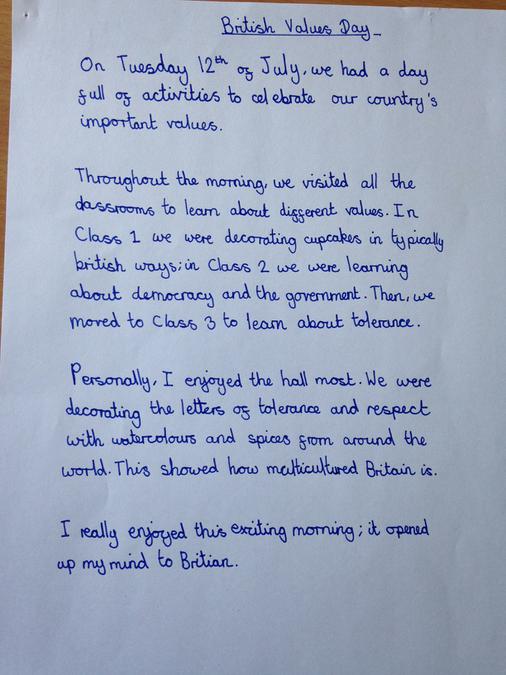 British Values Day
On Tuesday 12th of July, we had a day
full of activities to celebrate our country's
important values.
Throughout the morning, we visited all the
classrooms to learn about different values. In
Class 1 we were decorating cupcakes in typically
british ways; in Class 2 we were learning
about democracy and the government. Then, we
moved to Class 3 to learn about tolerance.
Personally, I enjoyed the hall most. We were
decorating the letters of tolerance and respect
with watercolours and spices from around the
world. This showed how multicultured Britain is.
I really enjoyed this exciting morning; it opened
up my mind to Britian.